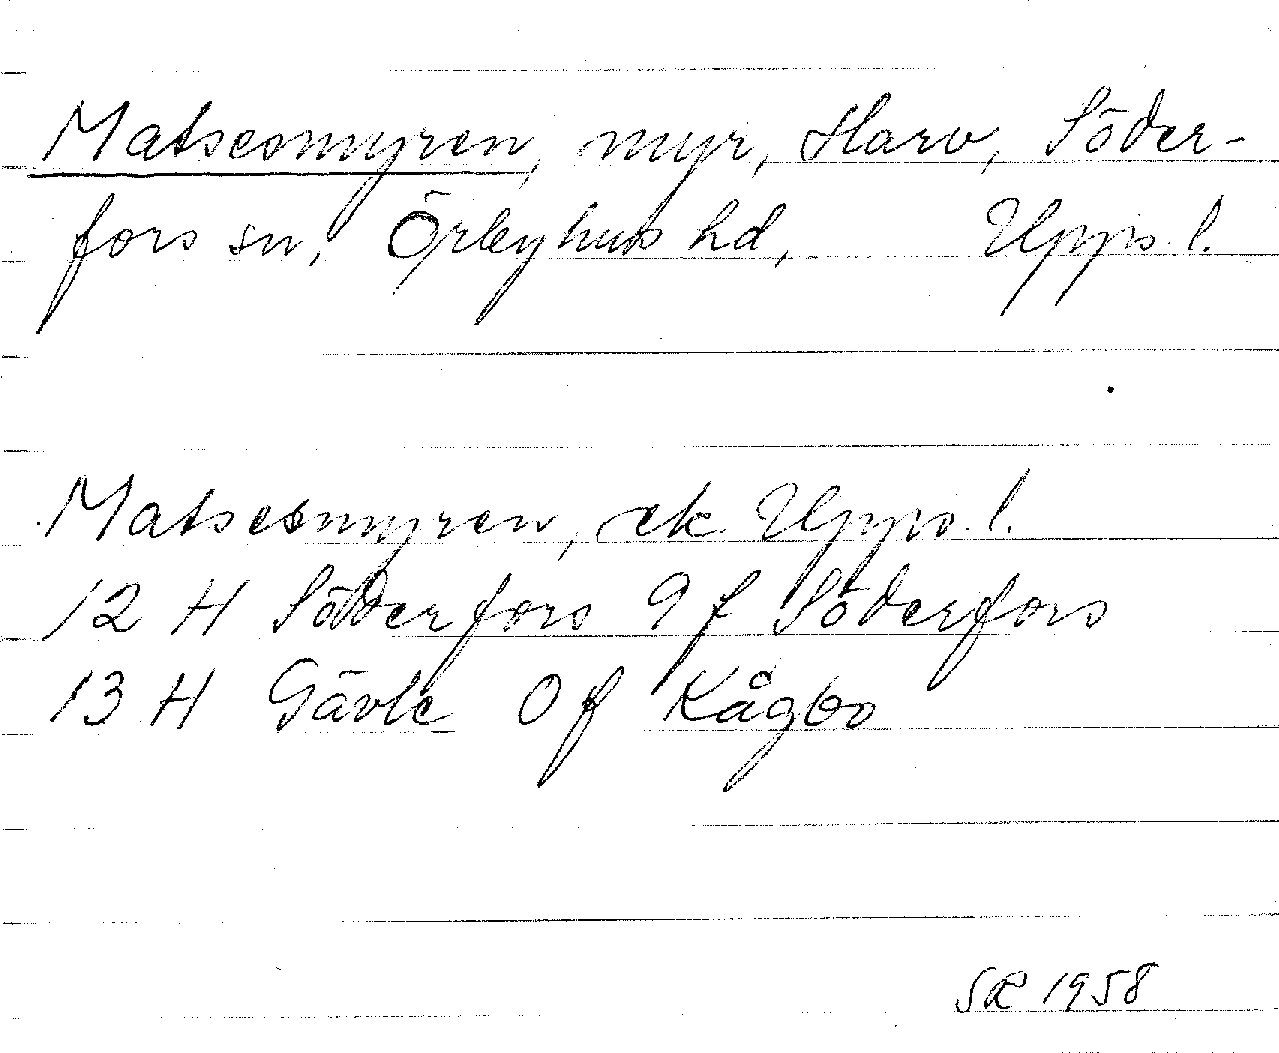 Matsesmyren, myr, Harv, Söder-
fors sn, Örbyhus hd, Upps. l.
Matsesmyren, ek. Upps. l.
12 H Söderfors 9 f Söderfors
13 H Gävle 0 f Kågbo
SR 1958